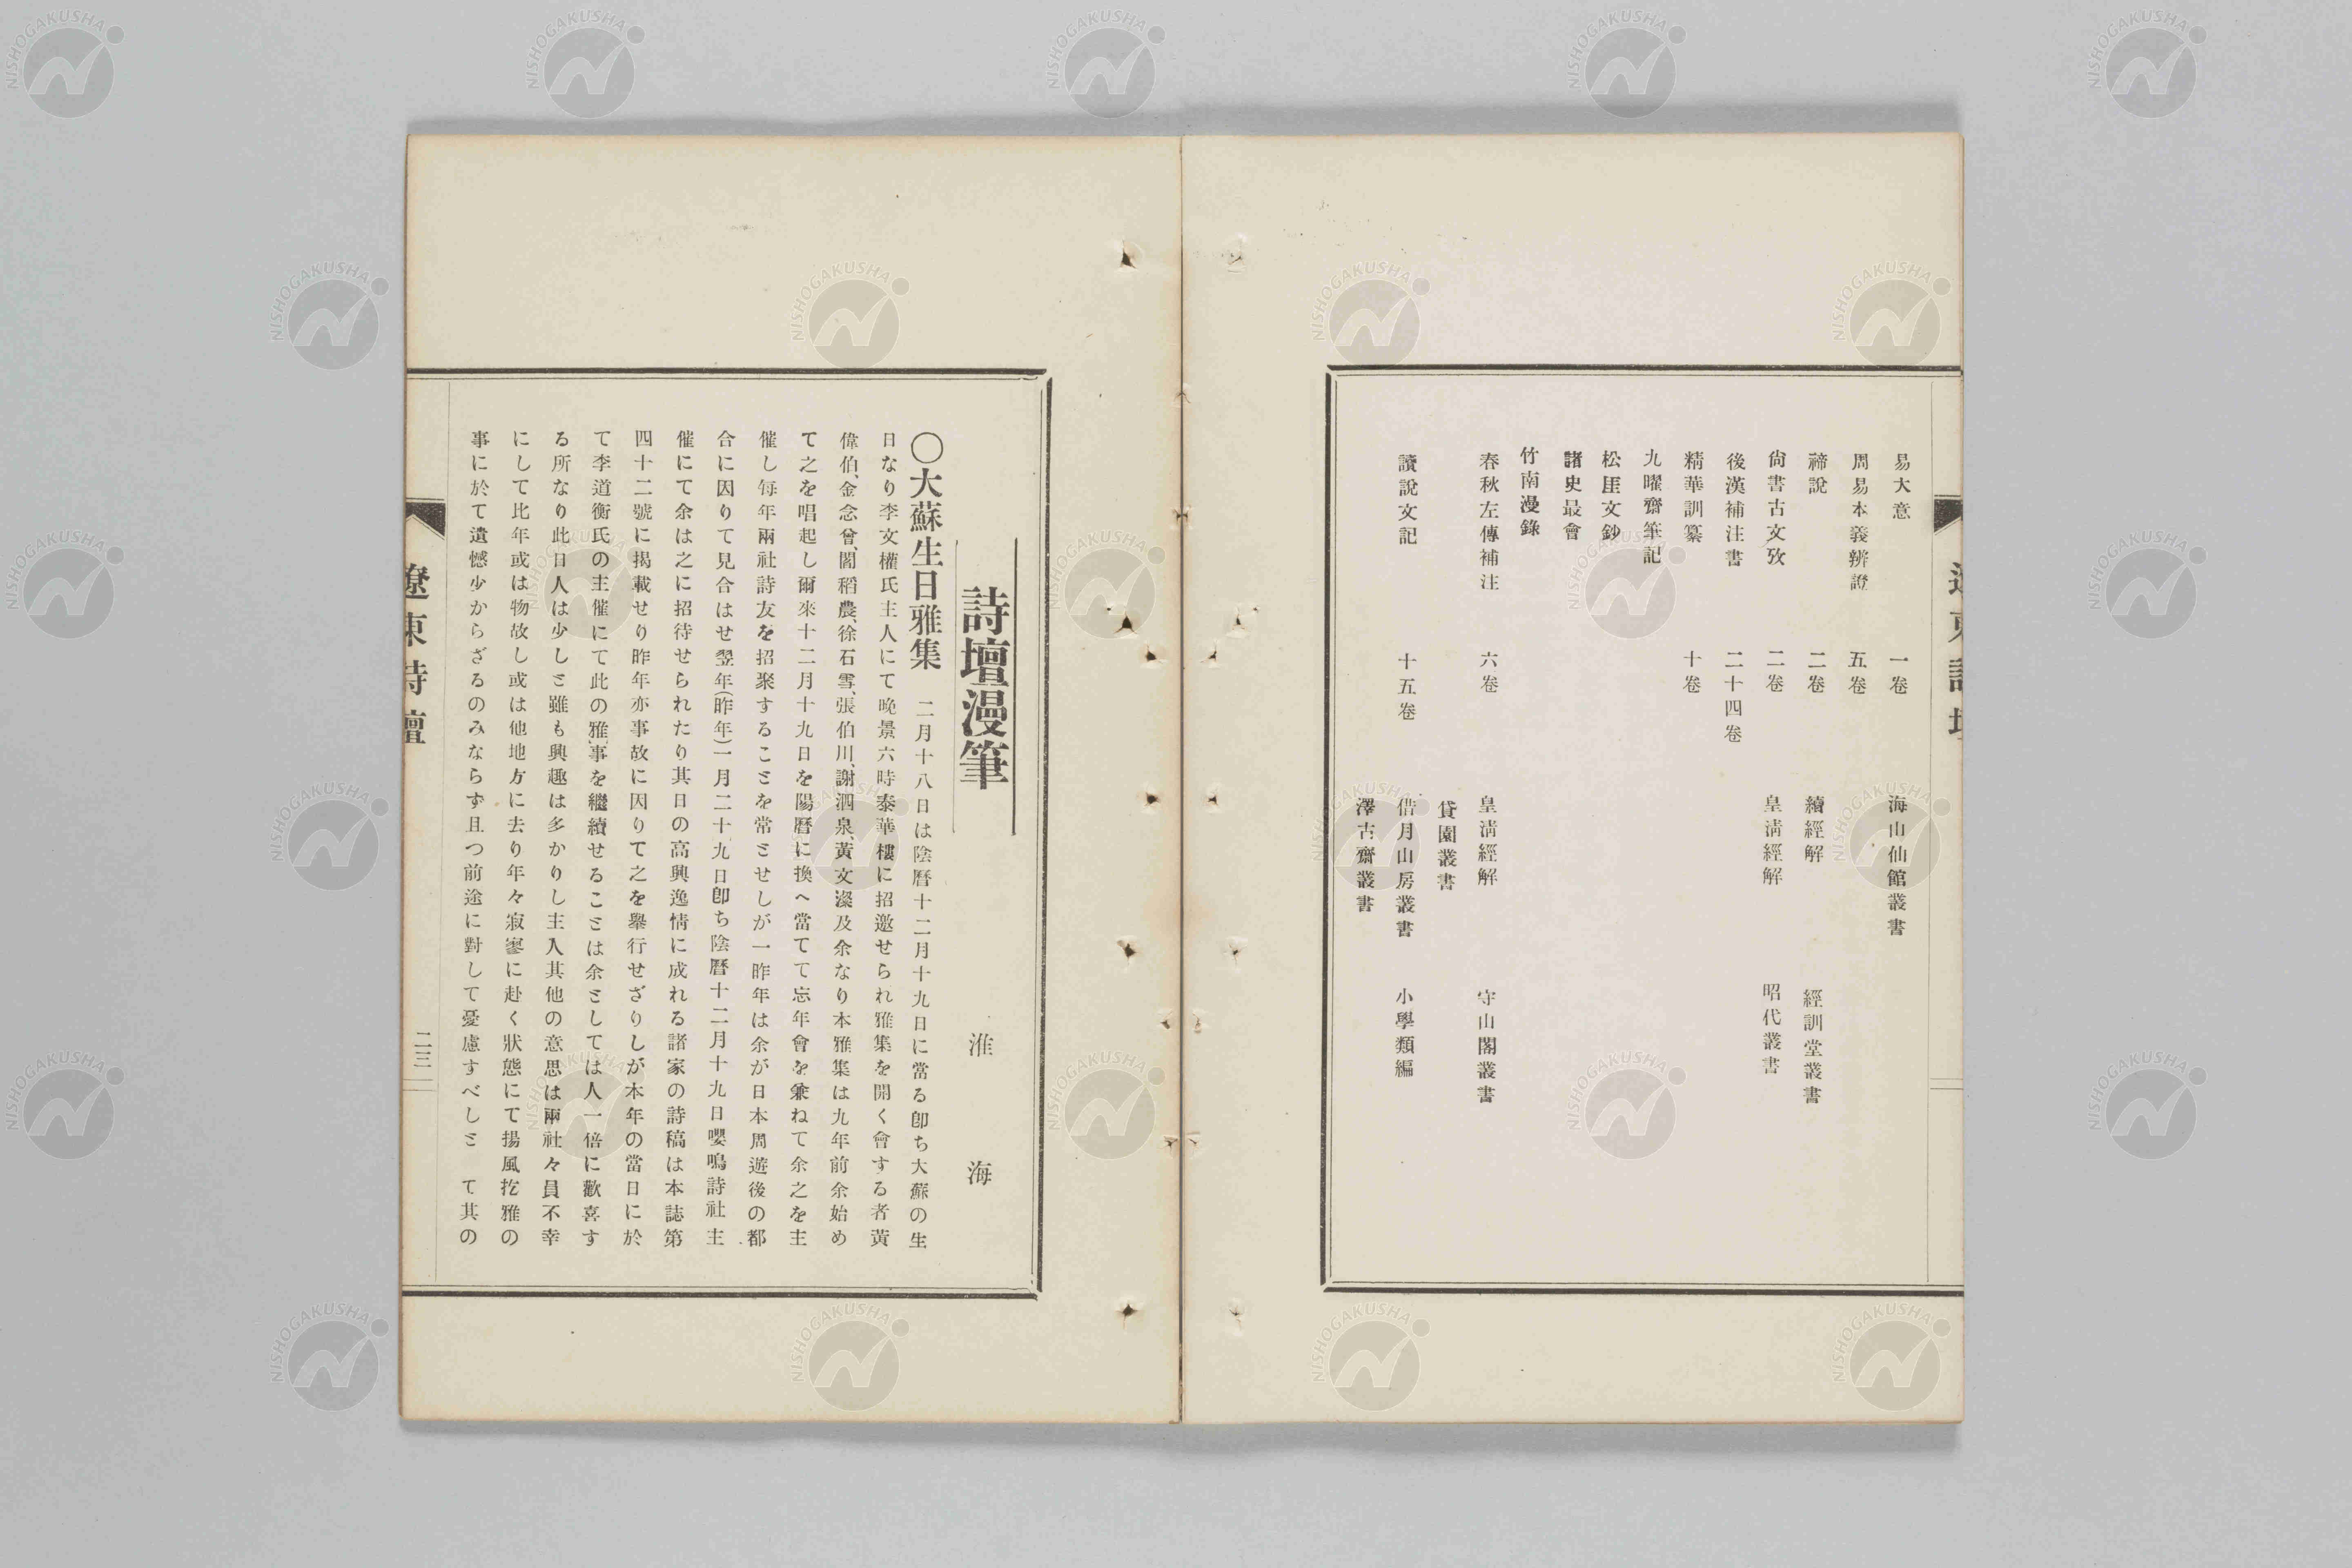 易大意 一卷 海山仙館叢書
周易本義辨證 五卷
禘說 二卷 續經解 經訓堂叢書
尙書古文攷 二卷 皇淸經解 昭代叢書
後漢補注書 二十四卷
精華訓纂 十卷
九曜齋筆記
松厓文鈔
諸史最會
竹南漫錄
春秋左傳補注 六卷 皇淸經解 守山閣叢書
貸園叢書
讀說文記 十五卷 借月山房叢書 小學類編
澤古齋叢書
遼東詩壇
詩壇漫筆 淮海
〇大蘇生日雅集 二月十八日は陰曆十二月十九日に當る卽ち大蘇の生
日なり李文權氏主人にて晚景六時泰華樓に招邀せられ雅集を開く會する者黃
偉伯、金念曾、閻稻農、徐石雪、張伯川、謝泗泉、黃文濚及余なり本雅集は九年前余始め
て之を唱起し爾來十二月十九日を陽曆に換へ當てて忘年會を兼ねて余之を主
催し每年兩社詩友を招聚することを常とせしが一昨年は余が日本周遊後の都
合に因りて見合はせ翌年(昨年)一月二十九日卽ち陰曆十二月十九日嚶鳴詩社主
催にて余は之に招待せられたり其日の高興逸情に成れる諸家の詩稿は本誌第
四十二號に揭載せり昨年亦事故に因りて之を擧行せざりしが本年の當日に於
て李道衡氏の主催にて此の雅事を繼續せることは余としては人一倍に歡喜す
る所なり此日人は少しと雖も興趣は多かりし主人其他の意思は兩社々員不幸
にして比年或は物故し或は他地方に去り年々寂寥に赴く狀態にて揚風扢雅の
事に於て遺憾少からざるのみならず且つ前途に對して憂慮すべしと て其の
遼東詩壇 二三
NISHOGAKUSHA